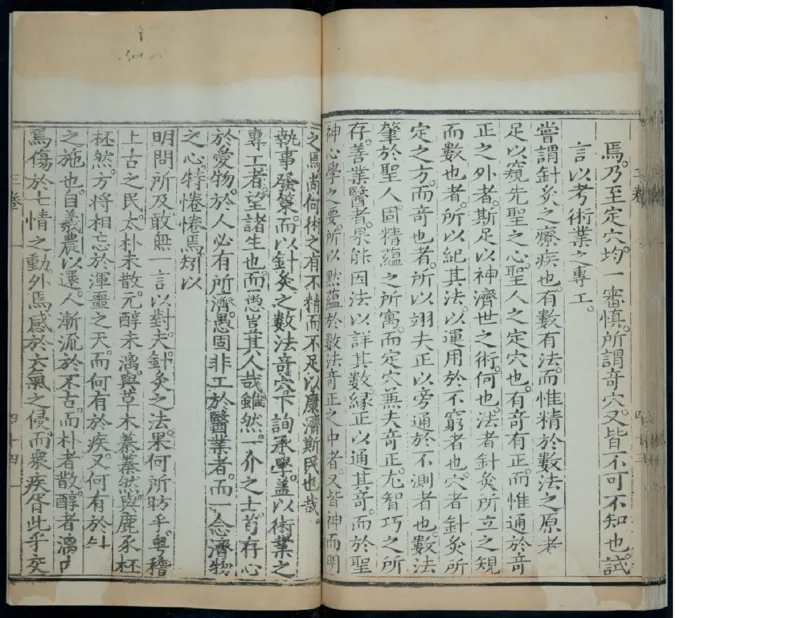 焉。乃至定穴。均一審慎。所謂奇穴。又皆不可不知也。試
言以考術業之專工。
嘗謂針灸之療疾也。有數有法。而惟精於數法之原者
足以窺先聖之心。聖人之定穴也。有奇有正。而惟通於奇
正之外者。斯足以神濟世之術。何也。法者針灸所立之規
而數也者。所以紀其法。以運用於不窮者也。穴者針灸所
定之方。而奇也者。所以翊夫正以旁通於不測者也。數法
肇於聖人。固精蘊之所寓。而定穴兼夫奇正。尤智巧之所
存。善業醫者。果能因法以詳其數。緣正以通其奇。而於聖
神心學之要。所以默蘊於數法奇正之中者。又皆神而明
之焉。尚何術之有不精而不足以康濟斯民也哉。
執事發策。而以針灸之數法奇穴。下詢承學。蓋以術業之
專工者。望諸生也。而愚豈其人哉。雖然。一介之士。苟存心
於愛物。於人必有所濟。愚固非工於醫業者。而一念濟物
之心。特惓惓焉。矧以
明問所及。敢無一言以對。夫針灸之法。果何所昉乎。粵稽
上古之民。太朴未散。元醇未漓。與草木蓁蓁然。與鹿豕狉
狉然。方將相忘於渾噩之天。而何有於疾。又何有於針
之施也。自羲農以還。人漸流於不古。而朴者散。醇者漓。內
焉傷於七情之動。外焉感於六氣之侵。而衆疾胥此乎交
三卷
四十四